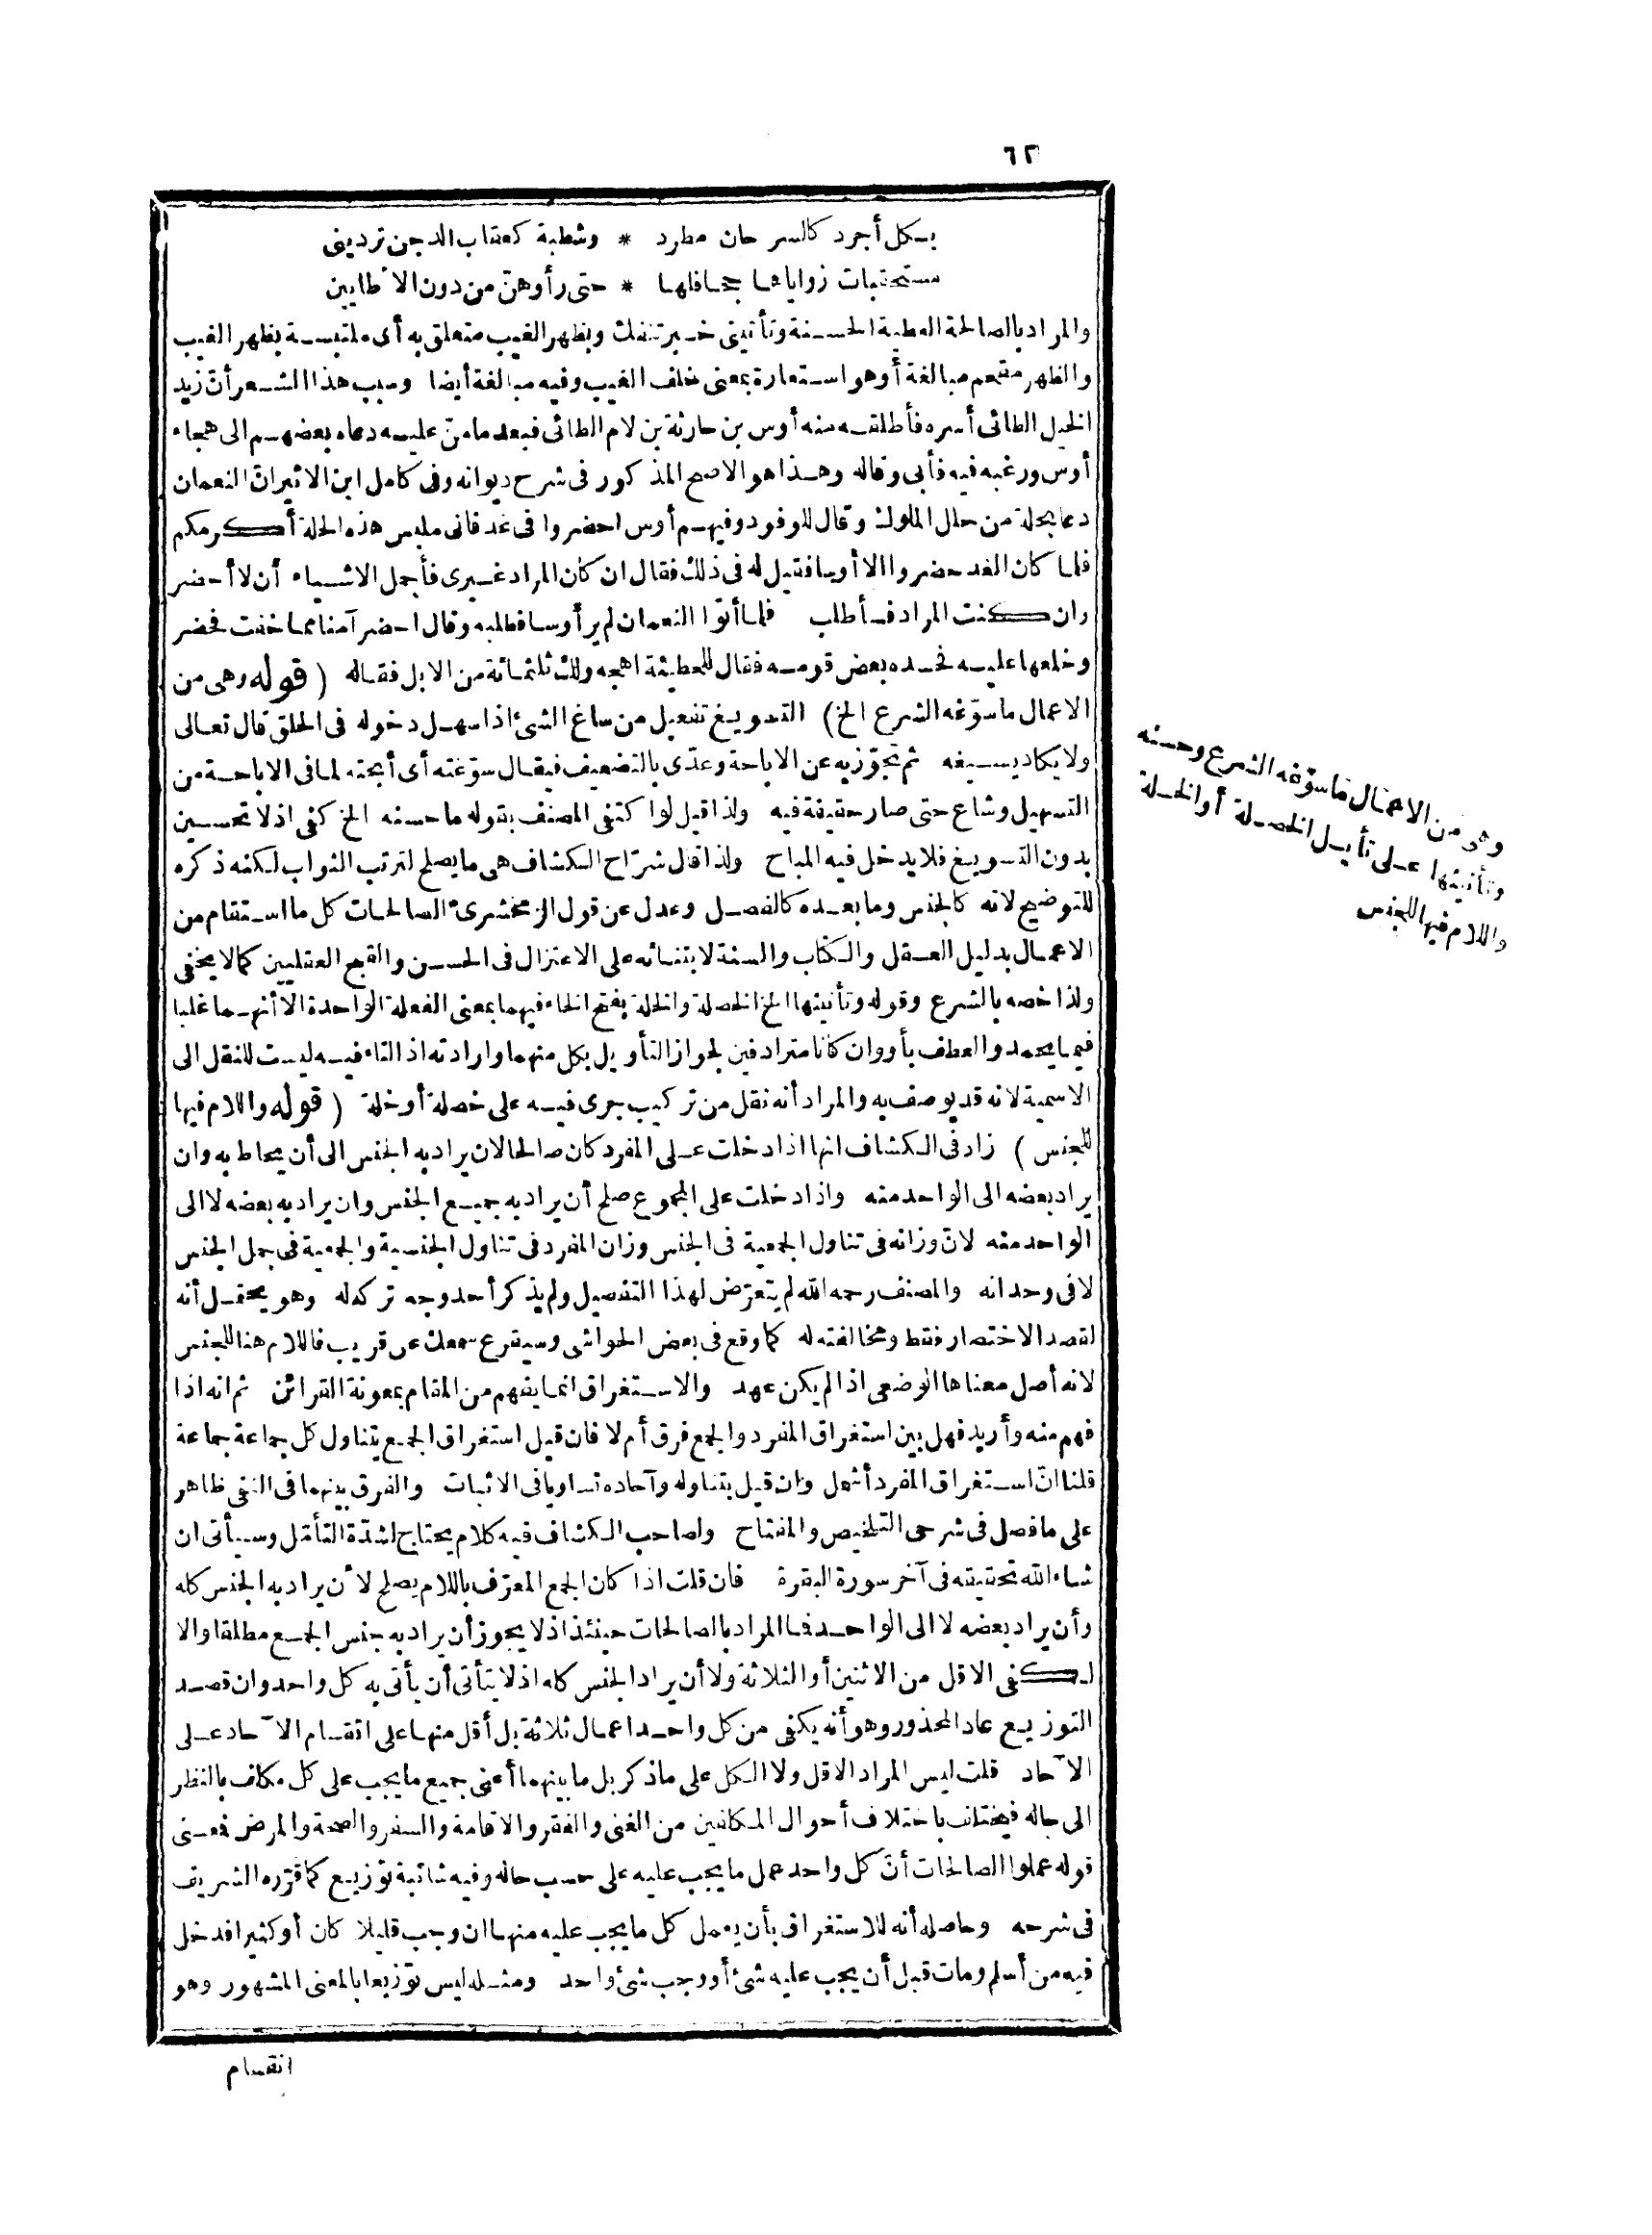 ٦٢
بكل أجرد كالسرحان مطرد * وشطبة كعقاب الدجن ترديني
مستحقبات زواياها جحافلها * حتى رأوهن من دون الاظايين
والمراد بالصالحة العطية الحسنة وتأتيني خبر تنفك وبظهر الغيب متعلق به أى ملتبسة بظهر الغيب
والظهر مقحم مبالغة أو هو استعارة بمعنى خلف الغيب وفيه مبالغة أيضا وسبب هذا الشعر أن زيد
الخيل الطائى أسره فأطلقه منه أوس بن حارثة بن لام الطائى فبعد ما منّ عليه دعاه بعضهم الى هجاء
أوس ورغبه فيه فأبى وقاله وهذا هو الاصح المذكور فى شرح ديوانه وفى كامل ابن الاثير انّ النعمان
دعا بحلة من حلل الملوك وقال للوفود وفيهم أوس احضروا فى غد فانى ملبس هذه الحلة أكرمكم
فلما كان الغد حضروا الا أوسا فقيل له فى ذلك فقال ان كان المراد غيرى فأجمل الاشياء أن لا أحضر
وان كنت المراد فسأطلب فلما أتوا النعمان لم ير أوسا فطلبه وقال احضر آمنا مما خفت فحضر
وخلعها عليه فحسده بعض قومه فقال للحطيئة اهجه ولك ثلثمائة من الابل فقاله (قوله وهى من
الاعمال ماسوّغه الشرع الخ) التسويغ تفعيل من ساغ الشئ اذا سهل دخوله فى الحلق قال تعالى
ولا يكاد يسيغه ثم تجوّز به عن الاباحة وعدّى بالتضعيف فيقال سوّغته أى أبحته لما فى الاباحة من
التسهيل وشاع حتى صار حقيقة فيه ولذا قيل لو اكتفى المصنف بقوله ما حسنه الخ كفى اذ لا تحسين
بدون التسويغ فلا يدخل فيه المباح ولذا قال شرّاح الكشاف هى ما يصلح لترتب الثواب لكنه ذكره
للتوضيح لانه كالجنس وما بعده كالفصل وعدل عن قول الزمخشرى الصالحات كل ما استقام من
الاعمال بدليل العقل والكتاب والسنة لابتنائه على الاعتزال فى الحسن والقبح العقليين كما لا يخفى
ولذا خصه بالشرع وقوله وتأنيثها الخ الخصلة والخلة بفتح الخاء فيهما بمعنى الفعلة الواحدة الا أنهما غلبا
فيما يحمد والعطف بأو وان كانا مترادفين لجواز التأويل بكل منهما وارادته اذ التاء فيه ليست للنقل الى
الاسمية لانه قد يوصف به والمراد أنه نقل من تركيب جرى فيه على خصلة أو خلة (قوله واللام فيها
للجنس) زاد فى الكشاف انها اذا دخلت على المفرد كان صالحا لان يراد به الجنس الى أن يحاط به وان
يراد بعضه الى الواحد منه واذا دخلت على المجموع صلح أن يراد به جميع الجنس وان يراد به بعضه لا الى
الواحد منه لانّ وزانه فى تناول الجمعية فى الجنس وزان المفرد فى تناول الجنسية والجمعية فى جمل الجنس
لا فى وحدانه والمصنف رحمه الله لم يتعرّض لهذا التفصيل ولم يذكر أحد وجه تركه له وهو يحتمل أنه
لقصد الاختصار فقط ومخالفته له كما وقع فى بعض الحواشى وسيقرع سمعك عن قريب فاللام هنا للجنس
لانه أصل معناها الوضعى اذا لم يكن عهد والاستغراق انما يفهم من المقام بمعونة القرائن ثم انه اذا
فهم منه وأريد فهل بين استغراق المفرد والجمع فرق أم لا فان قيل استغراق الجمع يتناول كل جماعة جماعة
قلنا انّ استغراق المفرد أشمل وان قيل يتناوله وآحاده تساويا فى الاثبات والفرق بينهما فى النفى ظاهر
على ما فصل فى شرحى التلخيص والمفتاح ولصاحب الكشاف فيه كلام يحتاج لشدّة التأمّل وسيأتى ان
شاء الله تحقيقه فى آخر سورة البقرة فان قلت اذا كان الجمع المعرّف باللام يصلح لأن يراد به الجنس كله
وأن يراد بعضه لا الى الواحد فما المراد بالصالحات حينئذ اذ لا يجوز أن يراد به جنس الجمع مطلقا والا
لكفى الاقل من الاثنين أو الثلاثة ولا أن يراد الجنس كله اذ لا يتأتى أن يأتى به كل واحد وان قصد
التوزيع عاد المحذور وهو أنه يكفى من كل واحد اعمال ثلاثة بل أقل منها على انقسام الآحاد على
الآحاد قلت ليس المراد الاقل ولا الكل على ما ذكر بل ما بينهما أعنى جميع ما يجب على كل مكلف بالنظر
الى حاله فيختلف باختلاف أحوال المكلفين من الغنى والفقر والاقامة والسفر والصحة والمرض فمعنى
قوله عملوا الصالحات أنّ كل واحد عمل ما يجب عليه على حسب حاله وفيه شائبة توزيع كما قرّره الشريف
فى شرحه وحاصله أنه للاستغراق بأن يعمل كل ما يجب عليه منها ان وجب قليلا كان أو كثيرا فدخل
فيه من أسلم ومات قبل أن يجب عليه شئ أو وجب شئ واحد ومثله ليس توزيعا بالمعنى المشهور وهو
انقسام
وهى من الاعمال ماسوّغه الشرع وحسنه
وتأنيثها على تأويل الخصلة أو الخلة
واللام فيها للجنس